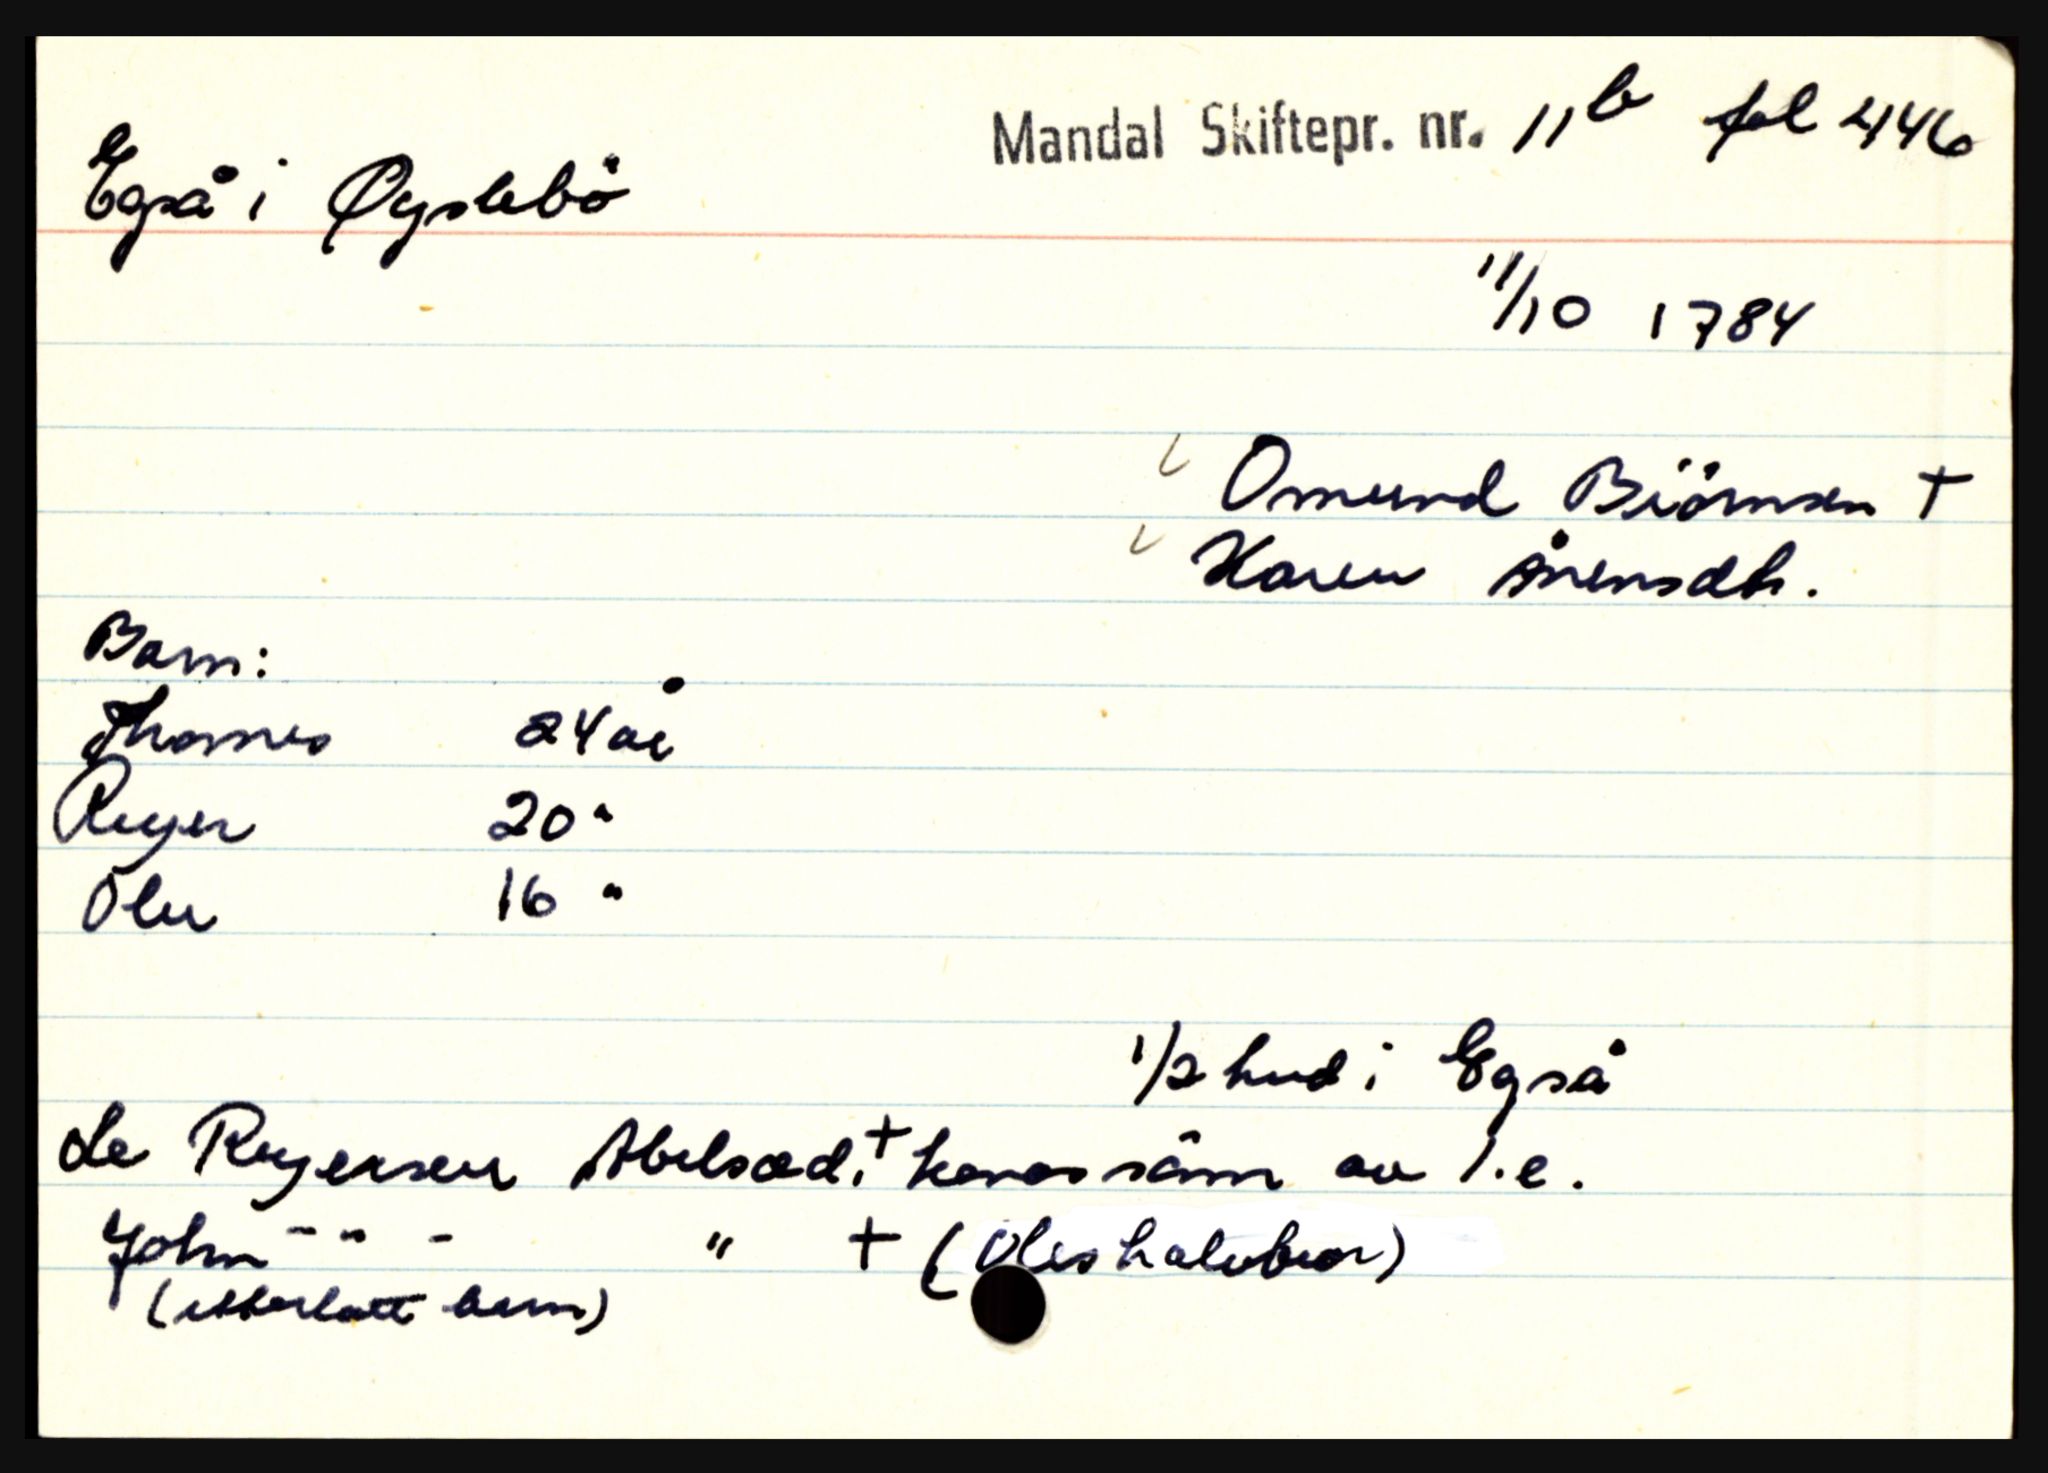 Mandal Skiftepr. nr. 11b fol 446
Egså i Øyslebö
11/10 1784
Omund Biörnsen +
Karen Ånensdtr.
Barn:
Thomes 24 år
Reyer 20 "
Olur 16 "
1/2 hud i Egså
Le Reyersen Abelsæd. + konas sönn av 1. e.
John - " - " + (Oles halvbror)
(etterlatt barn)